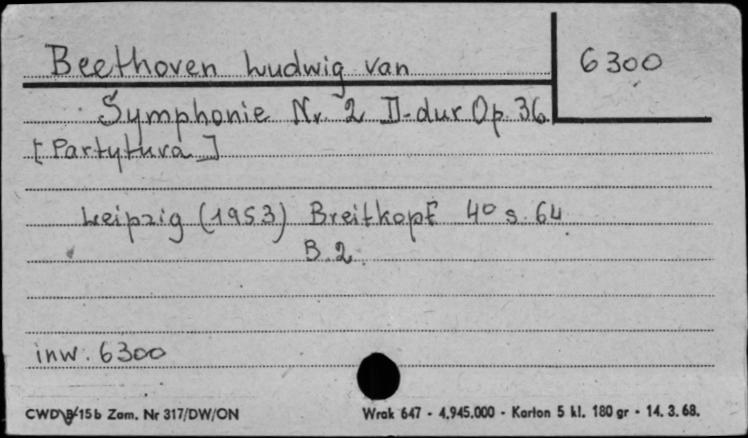 Beethoven Ludwig van
6300
Symphonie Nr. 2 D-dur Op. 36.
[Partytura]
Leipzig (1953) Breitkopf 4° s. 64
B. 2.
inw. 6300
CWD/15b Zam. Nr 317/DW/ON
Wrak 647 - 4.945.000 - Karton 5 kl. 180 gr - 14. 3. 68.